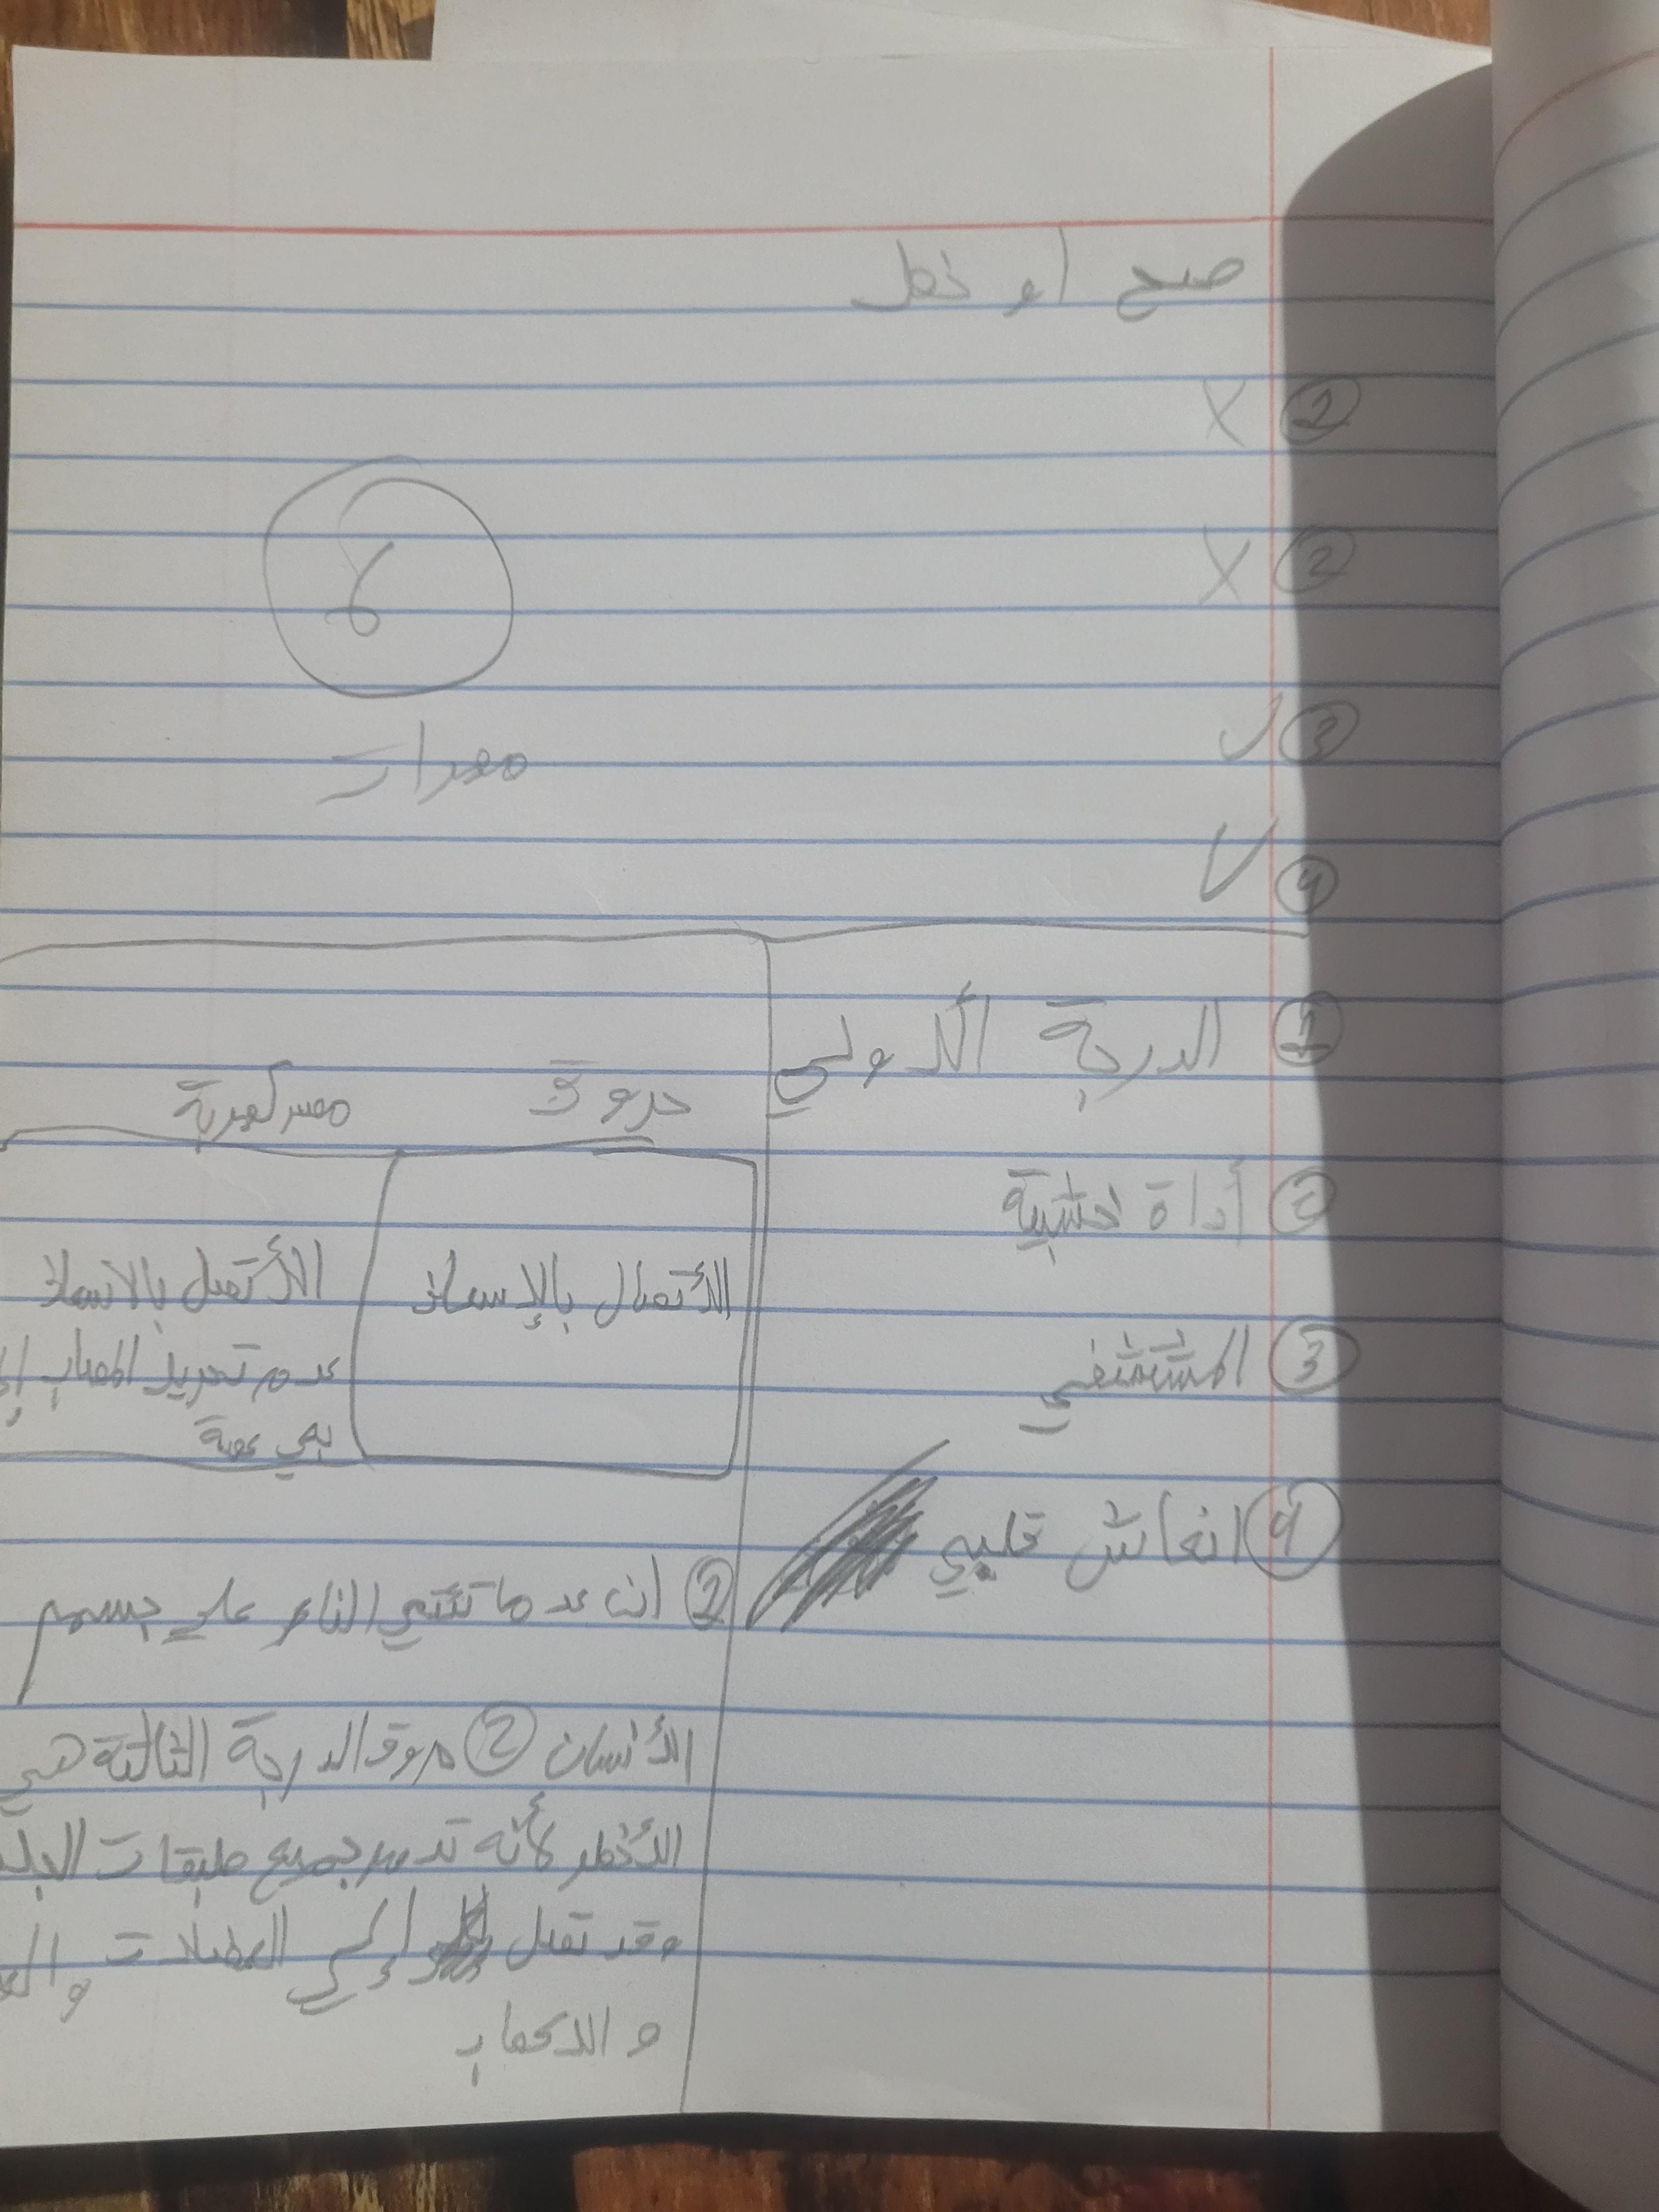 صح او خطل
① X
② X
③ ✓
④ ✓
6
① الدرجة الأولى
② أداة خشبية
③ المستشفى
④ انعاش قلبي
حروق
الأتصال بالإسعاف
الأتصل بالاسعا
عدم تحريك المصاب إلا
① ان عدما تنتهي النار على جسم
الأنسان ② حروق الدرجة الثالثة هي
الأخطر لأنه تدمر جميع طبقات الجلد
وقد تصل إلى العضلات و
و الاعصاب